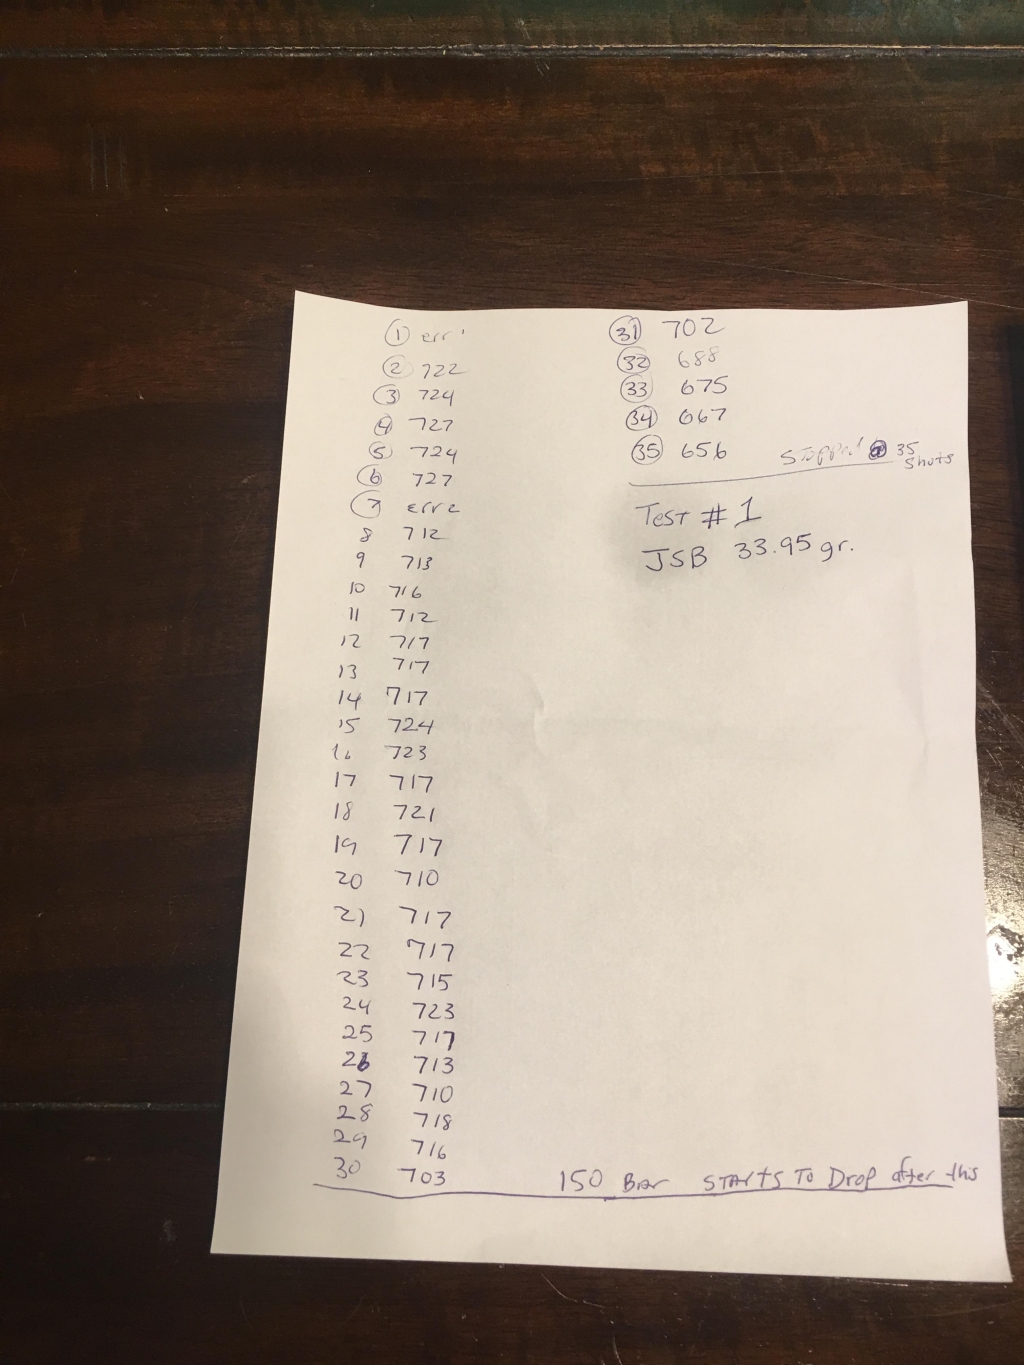 1 err1
2 722
3 724
4 727
5 724
6 727
7 err2
8 712
9 713
10 716
11 712
12 717
13 717
14 717
15 724
16 723
17 717
18 721
19 717
20 710
21 717
22 717
23 715
24 723
25 717
26 713
27 710
28 718
29 716
30 703
150 Bar STARTS To Drop after this
31 702
32 688
33 675
34 667
35 656
Stopped @ 35 Shots
Test # 1
JSB 33.95 gr.